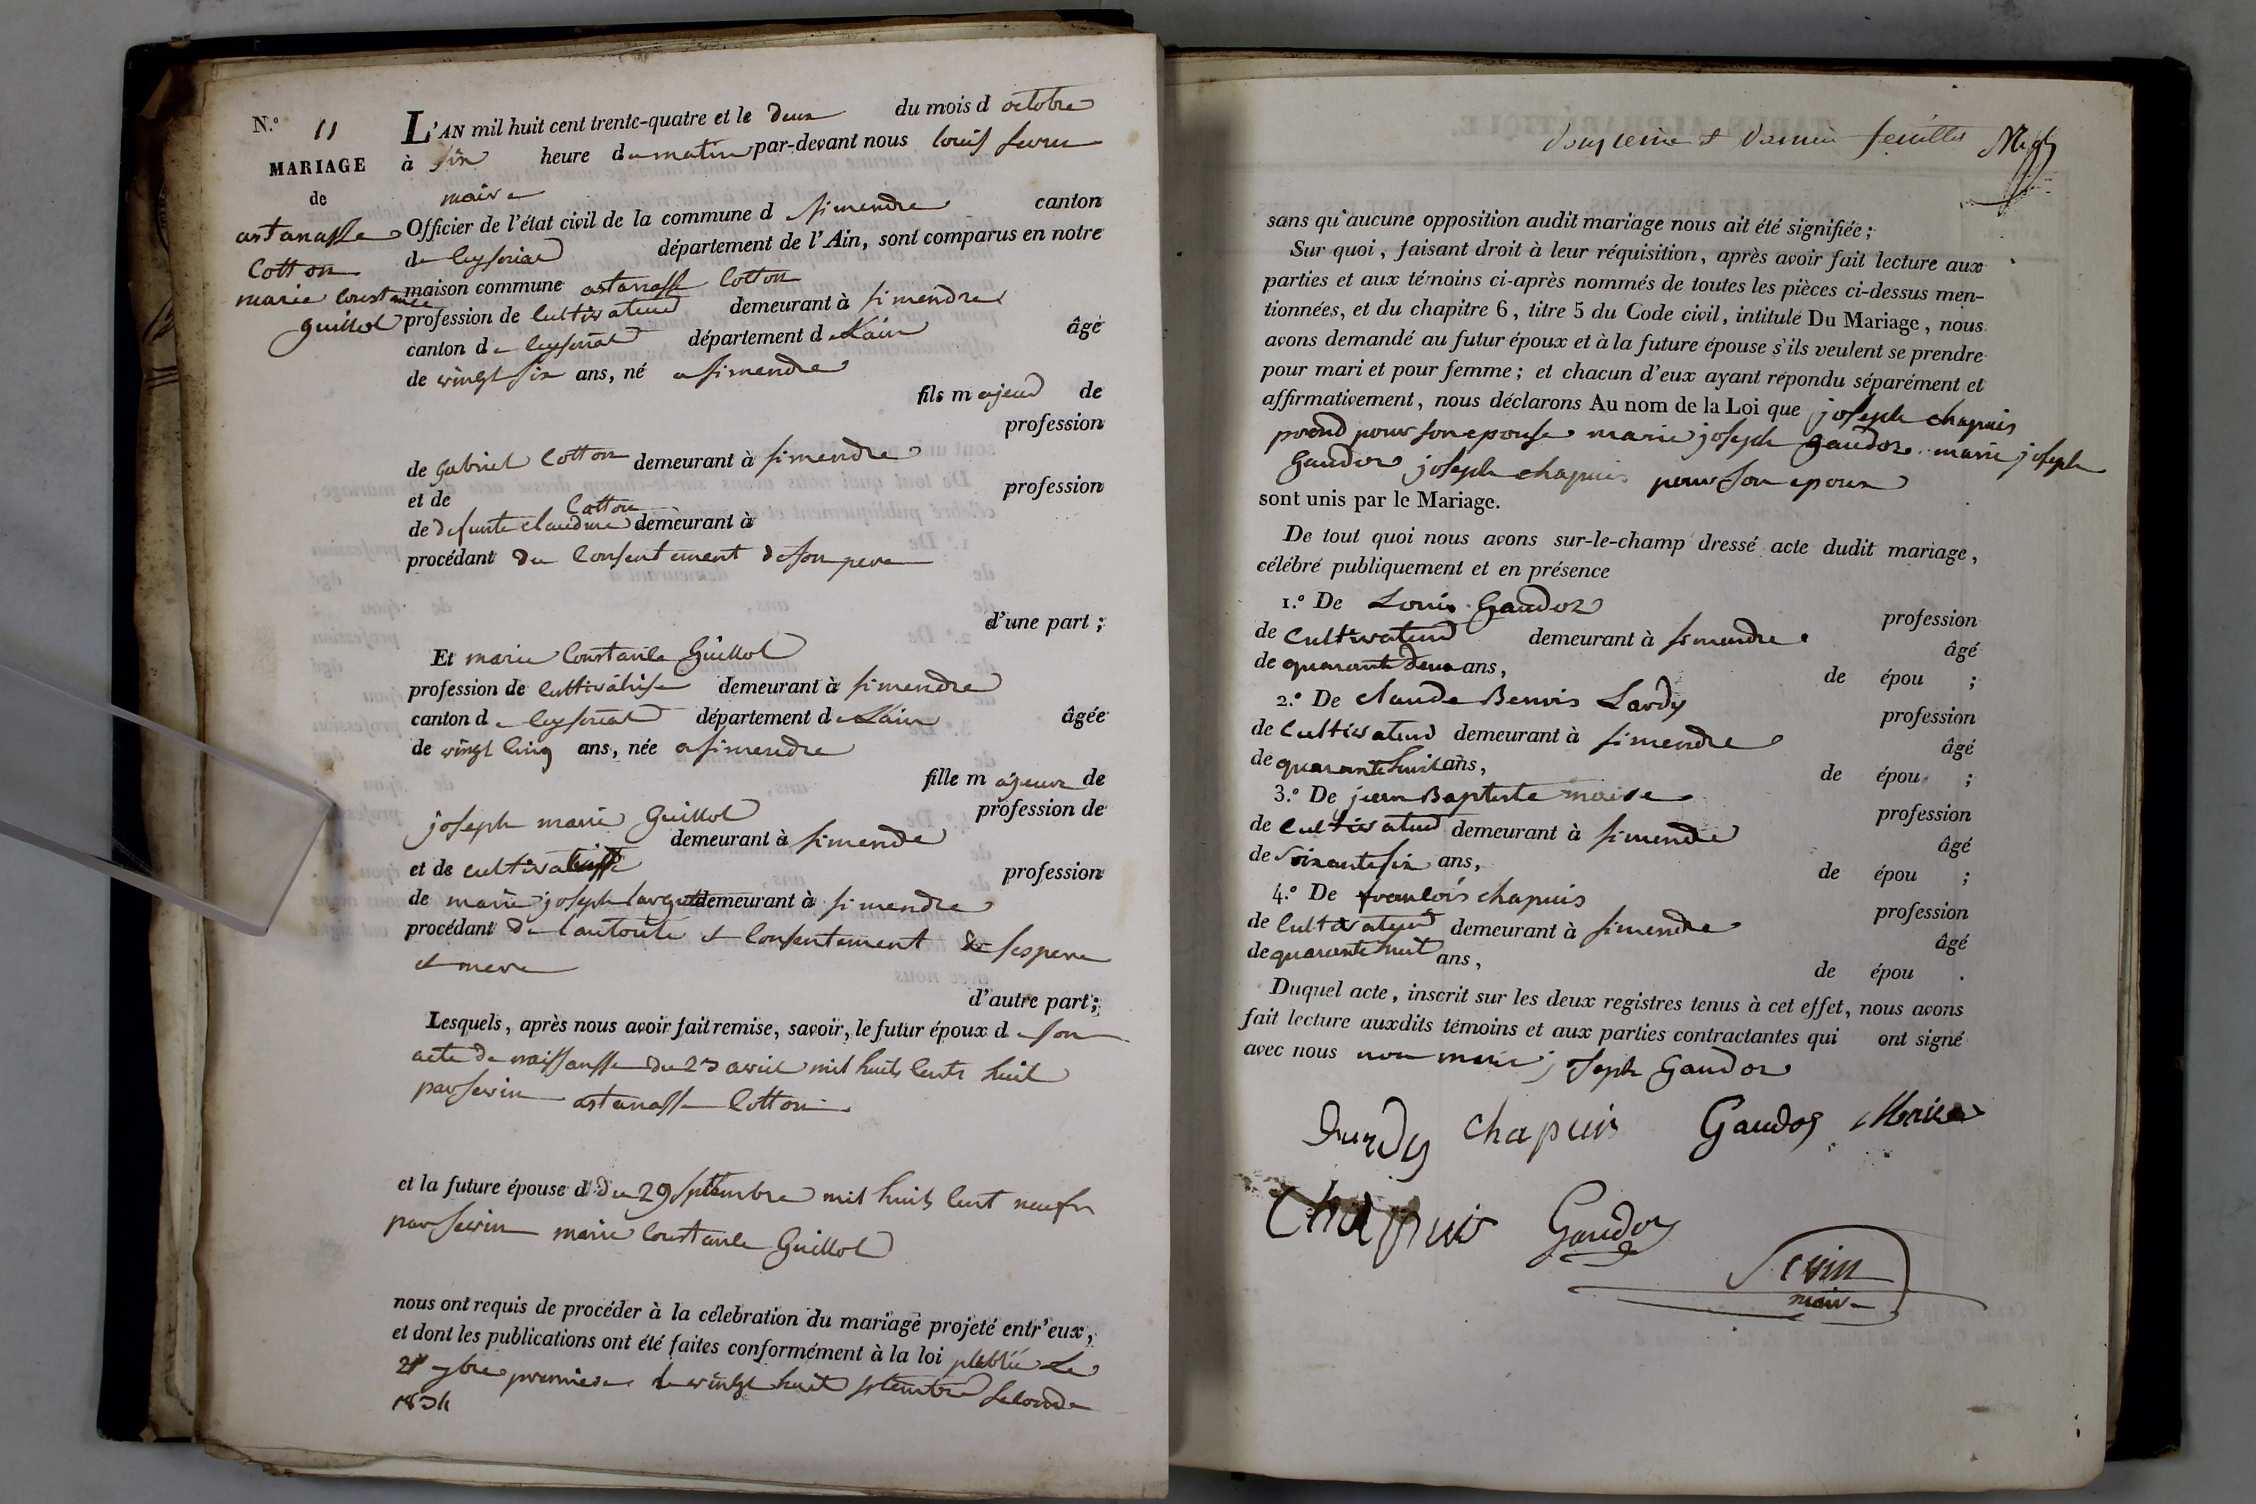 N.º 11
MARIAGE
de
astanasse
Cotton
marie Constance
Guillot
L'AN mil huit cent trente-quatre et le deux du mois d octobre
à six heure du matin par-devant nous louis Sevin
maire
Officier de l'état civil de la commune d simendre canton
de Ceyseriat département de l'Ain, sont comparus en notre
maison commune astanasse Cotton
profession de Cultivateur demeurant à simendre
canton de Ceyseriat département de Lain âgé
de vingt six ans, né a simendre
fils majeur de
profession
de Gabriel Cotton demeurant à simendre
et de profession
Cotton
de defunte claudine demeurant à
procédant du Consentement de son pere
d'une part ;
Et marie Constance Guillot
profession de Cultivatrise demeurant à simendre
canton de Ceyseriat département de Lain âgée
de vingt Cinq ans, née a simendre
fille majeure de
joseph marie Guillot profession de
demeurant à simendre
et de profession
de marie joseph demeurant à simendre
procédant de lautorite et Consentement de ses pere
et mere
d'autre part ;
Lesquels, après nous avoir fait remise, savoir, le futur époux de son
acte de naissansse du 23 avril mil huits Cents huit
par Sevin astanasse Cotton
et la future épouse d du 29 septembre mil huits Cent neuf
par Sevin marie Constance Guillot
nous ont requis de procéder à la célebration du mariage projeté entr'eux,
et dont les publications ont été faites conformément à la loi publié Le
21 7bre premiere le vingt huit septembre seconde
1834
et dernier feuillet
sans qu'aucune opposition audit mariage nous ait été signifiée ;
Sur quoi, faisant droit à leur réquisition, après avoir fait lecture aux
parties et aux témoins ci-après nommés de toutes les pièces ci-dessus men-
tionnées, et du chapitre 6, titre 5 du Code civil, intitulé Du Mariage, nous
avons demandé au futur époux et à la future épouse s'ils veulent se prendre
pour mari et pour femme ; et chacun d'eux ayant répondu séparément et
affirmativement, nous déclarons Au nom de la Loi que joseph chapuis
prend pour son epouse marie joseph gaudoz marie joseph
Gaudoz joseph chapuis pour son epoux
sont unis par le Mariage.
De tout quoi nous avons sur-le-champ dressé acte dudit mariage,
célébré publiquement et en présence
1.º De Louis Gaudoz profession
de Cultivateur demeurant à simendre âgé
de quarante deux ans, de épou ;
2.º De claude Benois Lardy profession
de Cultivateur demeurant à simendre âgé
de quarante huit ans, de épou ;
3.º De jean Baptiste profession
de Cultivateur demeurant à simendre âgé
de soixante six ans, de épou ;
4.º De francois chapuis profession
de Cultivateur demeurant à simendre âgé
de quarante huit ans, de épou .
Duquel acte, inscrit sur les deux registres tenus à cet effet, nous avons
fait lecture auxdits témoins et aux parties contractantes qui ont signé
avec nous non marie joseph Gaudoz
chapuis Gaudoz
Chapuis Gaudoz
Sevin
maire